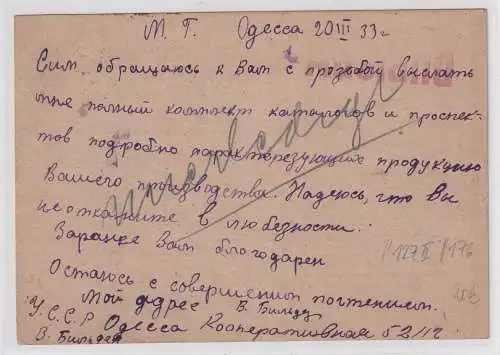 М. Г. Одесса 20 III 33 г
Сим обращаюсь к Вам с прозьбой выслать
мне полный комплект каталогов и проспек-
тов подробно характеризующих продукцию
Вашего производства. Надеюсь, что Вы
не откажите в любезности.
Заранее Вам благодарен
Остаюсь с совершеным почтением.
Мой адрес В. Бильдер
У.С.С.Р Одесса Кооперативная 52/12
В. Бильдер
unerledigt